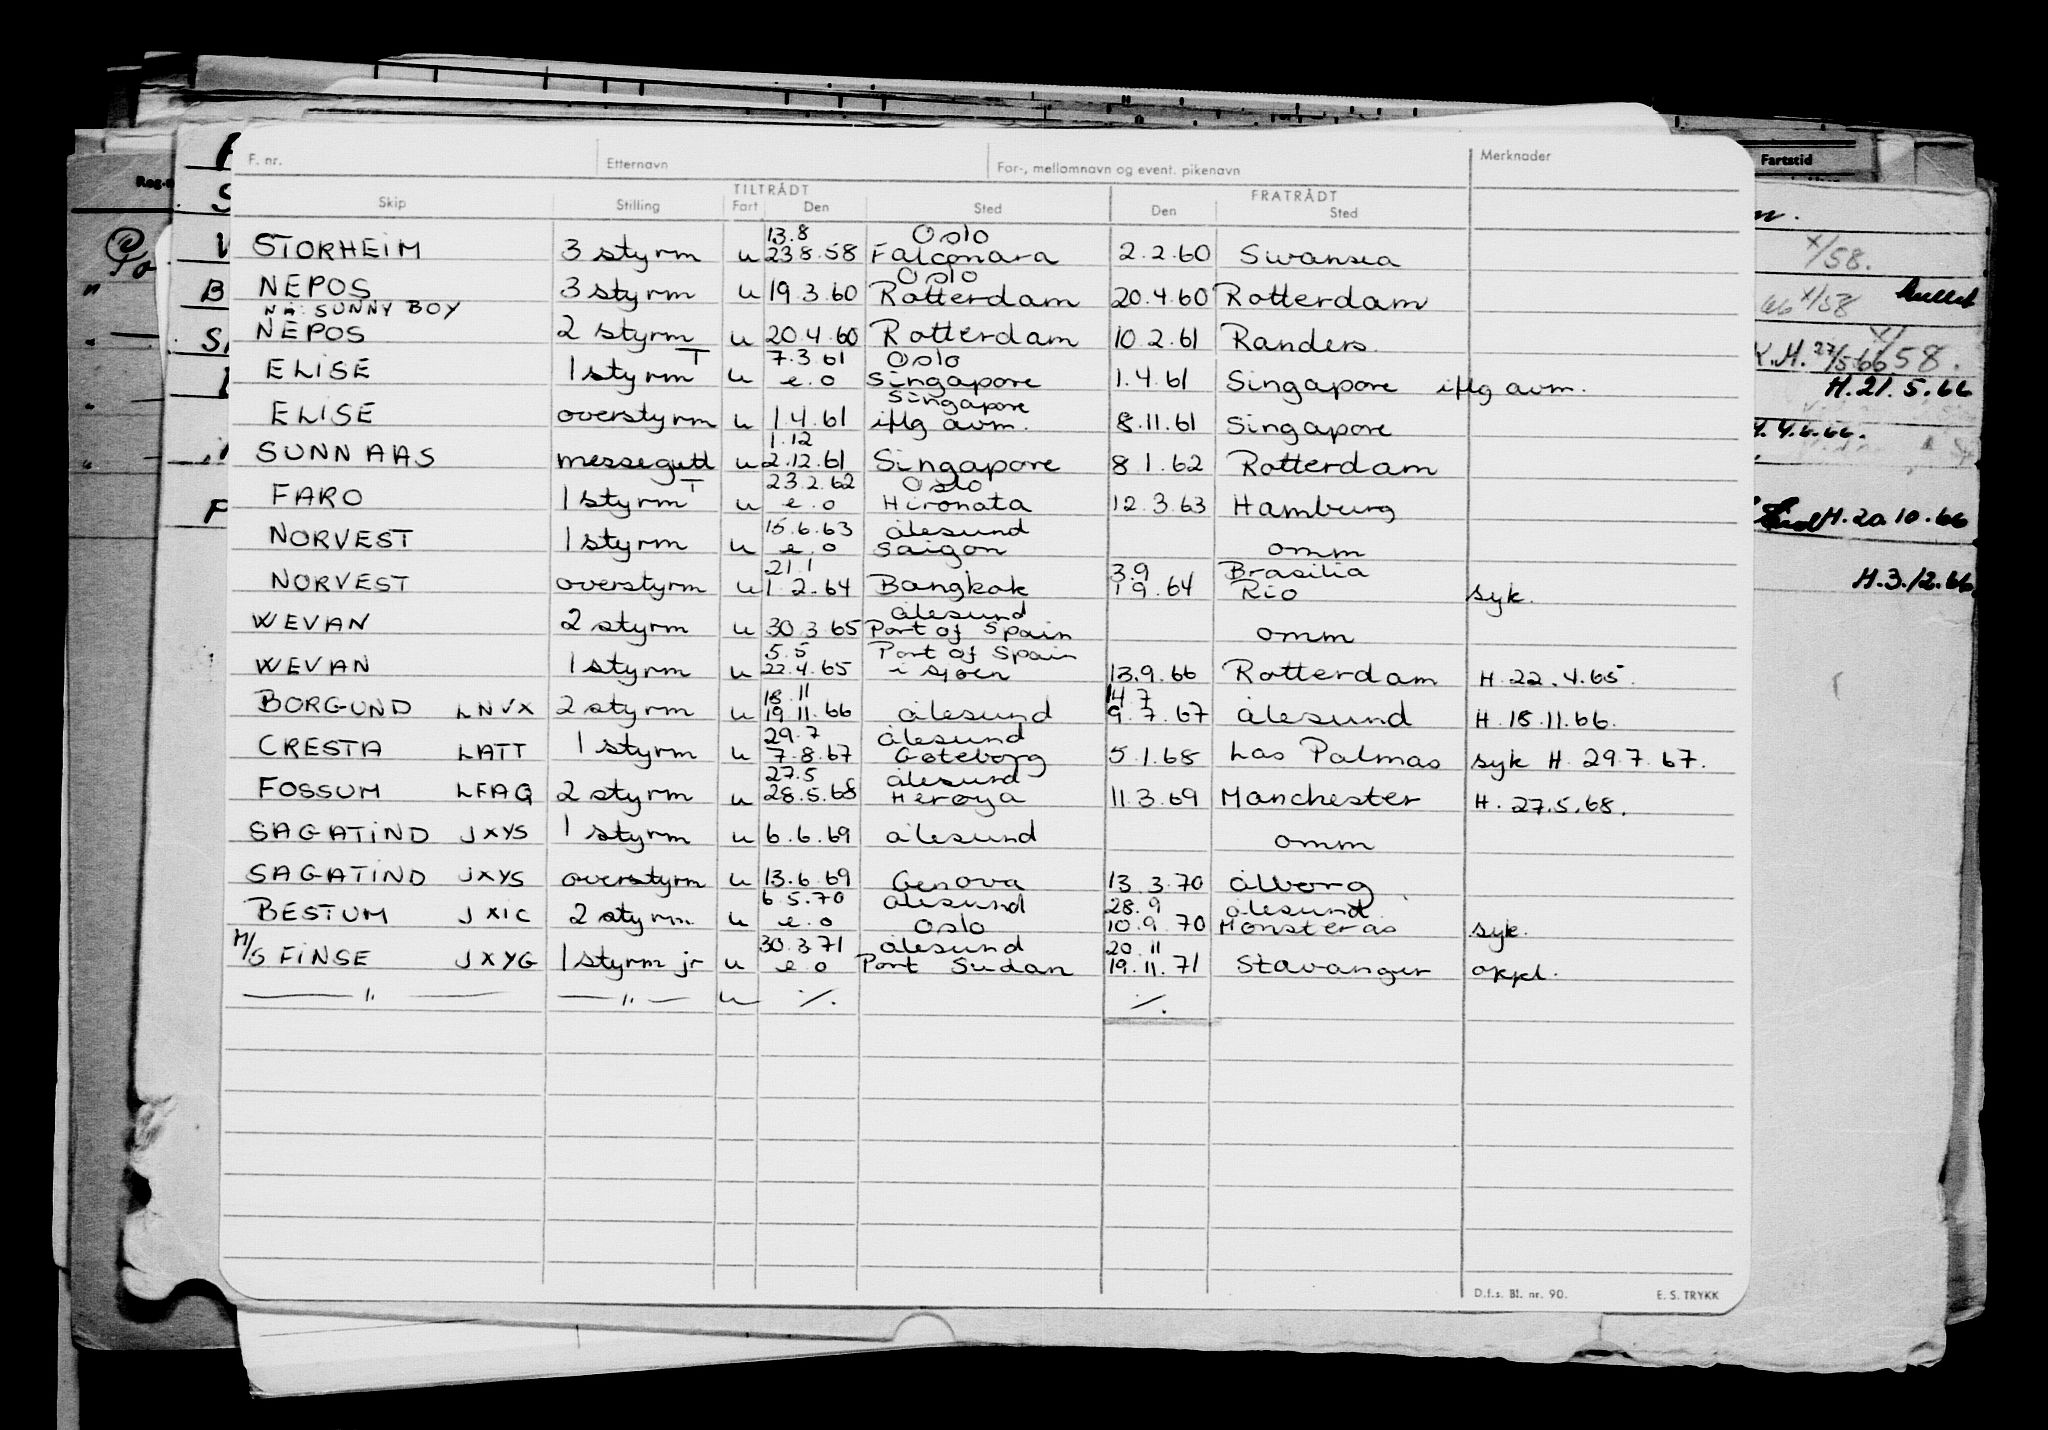 F. nr. Etternavn For-, mellomnavn og event. pikenavn Merknader
TILTRÅDT FRATRÅDT
Skip Stilling Fart Den Sted Den Sted
13.8 Oslo
STORHEIM 3 styrm u 23.8.58 Falconara 2.2.60 Swansea
Oslo
NEPOS 3 styrm u 19.3.60 Rotterdam 20.4.60 Rotterdam
NÅ: SUNNY BOY
NEPOS 2 styrm u 20.4.60 Rotterdam 10.2.61 Randers
7.3.61 Oslo
ELISE 1 styrm T u e.o Singapore 1.4.61 Singapore iflg avm.
Singapore
ELISE overstyrm u 1.4.61 iflg avm. 8.11.61 Singapore
1.12
SUNNAAS messegutt u 2.12.61 Singapore 8.1.62 Rotterdam
23.2.62 Oslo
FARO 1 styrm T u e.o Hironata 12.3.63 Hamburg
15.6.63 ålesund
NORVEST 1 styrm u e.o Saigon omm
21.1 3.9 Brasilia
NORVEST overstyrm u 1.2.64 Bangkok 1.9.64 Rio syk.
ålesund
WEVAN 2 styrm u 30.3.65 Port of Spain omm
5.5 Port of Spain
WEVAN 1 styrm u 22.4.65 i sjøen 13.9.66 Rotterdam H.22.4.65.
18.11 14.7
BORGUND LNVX 2 styrm u 19.11.66 ålesund 9.7.67 ålesund H.18.11.66.
29.7 ålesund
CRESTA LATT 1 styrm u 7.8.67 Gøteborg 5.1.68 Las Palmas syk H. 29.7.67.
27.5 ålesund
FOSSUM LFAG 2 styrm u 28.5.68 Herøya 11.3.69 Manchester H. 27.5.68.
SAGATIND JXYS 1 styrm u 6.6.69 ålesund omm
SAGATIND JXYS overstyrm u 13.6.69 Genova 13.3.70 ålborg
6.5.70 ålesund 28.9 ålesund
BESTUM JXIC 2 styrm. u e.o Oslo 10.9.70 Mønsterås syk.
30.3.71 ålesund 20.11
M/S FINSE JXYG 1 styrm jr u e.o Port Sudan 19.11.71 Stavanger oppl.
— " — — " — u ./. ./.
D.f.s. Bl. nr. 90. E. S. TRYKK
Fartstid
X/58.
X/58
K.M. 27/5.66
58.
H.21.5.66
H.20.10.66
H.3.12.66